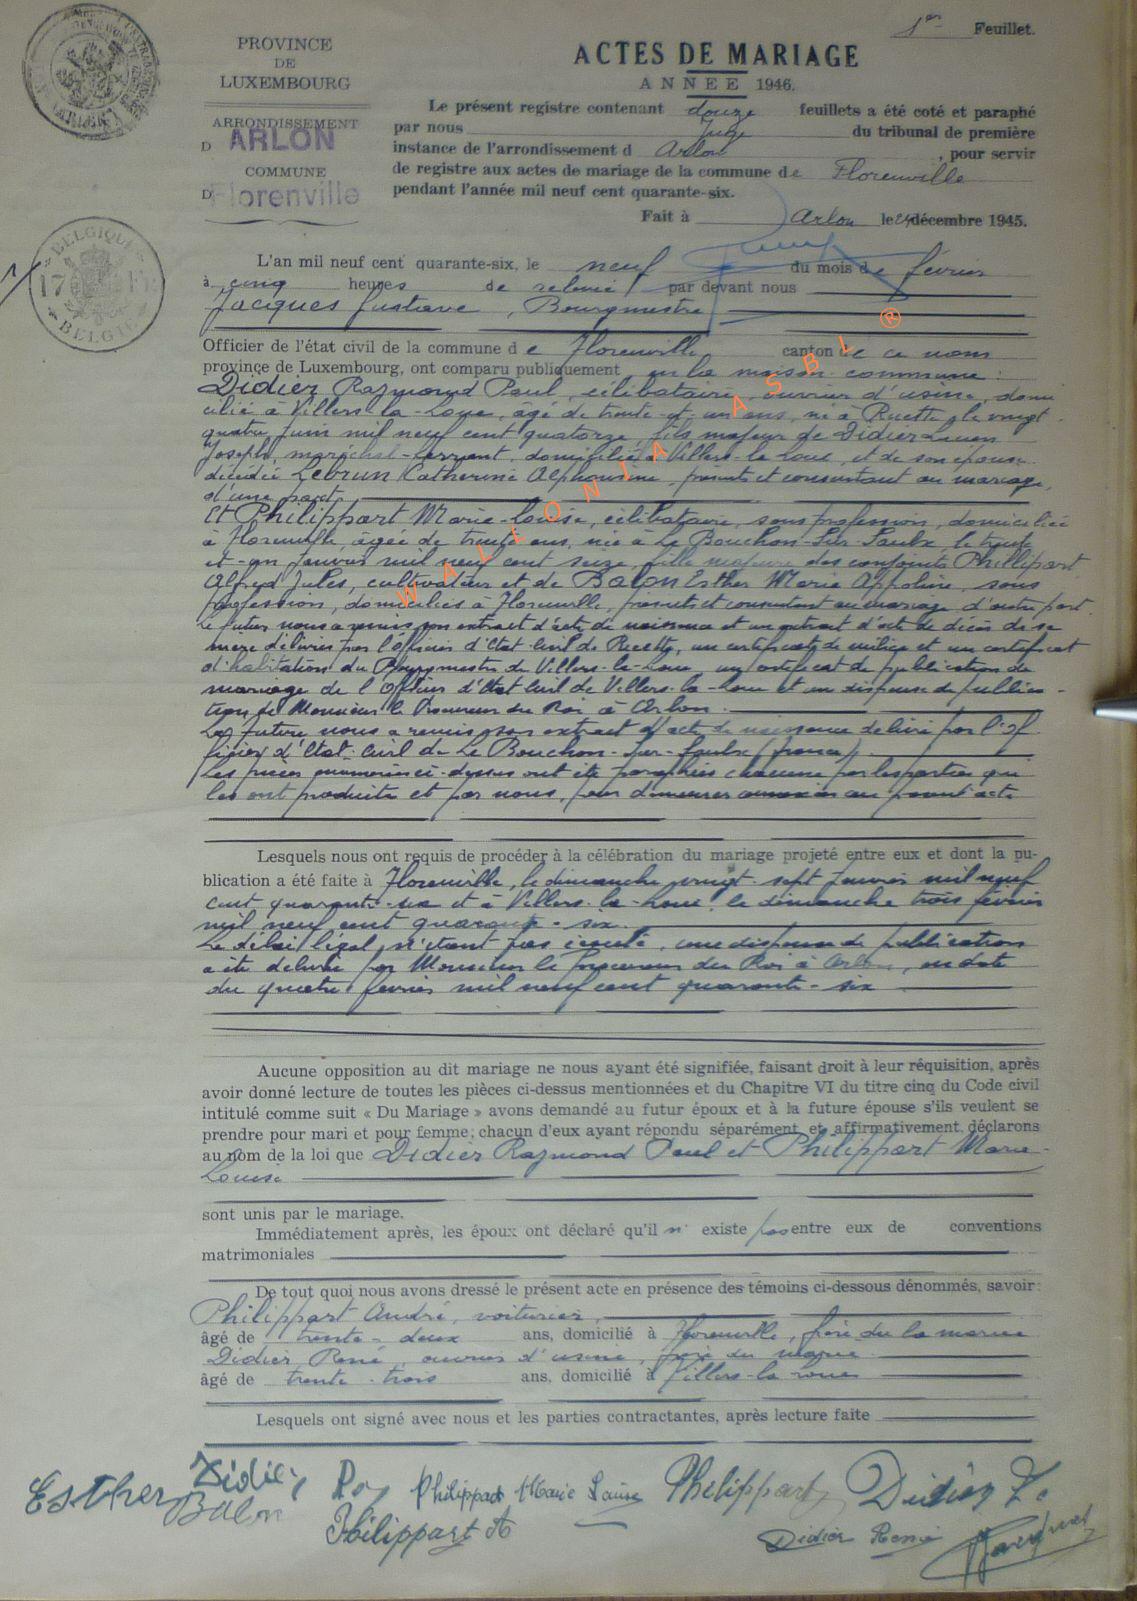 1er Feuillet.
PROVINCE
DE
LUXEMBOURG
ARRONDISSEMENT
D ARLON
COMMUNE
D Florenville
ACTES DE MARIAGE
ANNEE 1946.
Le présent registre contenant douze feuillets a été coté et paraphé
par nous Juge du tribunal de première
instance de l'arrondissement d Arlon, pour servir
de registre aux actes de mariage de la commune de Florenville
pendant l'année mil neuf cent quarante-six.
Fait à Arlon le 24 décembre 1945.
BELGIQUE
17 Fr
BELGIE
L'an mil neuf cent quarante-six, le neuf du mois de février
à cinq heures de relevée par devant nous
Jacques Gustave, Bourgmestre
Officier de l'état civil de la commune de Florenville canton de ce nom
province de Luxembourg, ont comparu publiquement en la maison commune :
Didier Raymond Paul, célibataire, ouvrier d'usine, domi
cilié à Villers-la-Loue, âgé de trente-et-un ans, né à Ruette, le vingt-
quatre juin mil neuf cent quatorze, fils majeur de Didier Lucien
Joseph, maréchal-ferrant, domicilié à Villers-la-Loue, et de son épouse
décédée Lebrun Catherine Alphonsine, présent et consentant au mariage,
d'une part.
Et Philippart Marie-Louise, célibataire, sans profession, domiciliée
à Florenville, âgée de trente ans, née à Le Bouchon-sur-Saulx le trente
et-un janvier mil neuf cent seize, fille majeure des conjoints Philippart
Alfred Jules, cultivateur et de Balon Esther Marie Appoline, sans
profession, domiciliés à Florenville, présents et consentant au mariage d'autre part.
Le futur nous a remis son extrait d'acte de naissance et un extrait d'acte de décès de sa
mère délivrés par l'Officier d'Etat-Civil de Ruette, un certificat de milice et un certificat
d'habitation du Bourgmestre de Villers-la-Loue, un certificat de publication de
mariage de l'Officier d'Etat Civil de Villers-la-Loue et un dispense de publica-
tion de Monsieur le Procureur du Roi à Arlon.
La future nous a remis son extrait d'acte de naissance délivré par l'Of
ficier d'Etat-Civil de Le Bouchon-sur-Saulx (france)
Les pièces ci-dessus ont été paraphées chacune par les parties qui
les ont produites et par nous, pour demeurer annexées au présent acte
Lesquels nous ont requis de procéder à la célébration du mariage projeté entre eux et dont la pu-
blication a été faite à Florenville, le dimanche vingt-sept janvier mil neuf
cent quarante-six et à Villers-la-Loue, le dimanche trois février
mil neuf cent quarante-six.
Le délai légal n'étant pas écoulé, une dispense de publication
a été délivrée par Monsieur le Procureur du Roi à Arlon, en date
du quatre février mil neuf cent quarante-six
Aucune opposition au dit mariage ne nous ayant été signifiée, faisant droit à leur réquisition, après
avoir donné lecture de toutes les pièces ci-dessus mentionnées et du Chapitre VI du titre cinq du Code civil
intitulé comme suit « Du Mariage » avons demandé au futur époux et à la future épouse s'ils veulent se
prendre pour mari et pour femme; chacun d'eux ayant répondu séparément et affirmativement, déclarons
au nom de la loi que Didier Raymond Paul et Philippart Marie-
Louise
sont unis par le mariage.
Immédiatement après, les époux ont déclaré qu'il n' existe pas entre eux de conventions
matrimoniales
De tout quoi nous avons dressé le présent acte en présence des témoins ci-dessous dénommés, savoir:
Philippart André, voiturier,
âgé de trente-deux ans, domicilié à Florenville, frère de la mariée
Didier René, ouvrier d'usine, frère du marié
âgé de trente-trois ans, domicilié à Villers-la-Loue
Lesquels ont signé avec nous et les parties contractantes, après lecture faite
Didier Ray Philippart Marie Louise Philippart Didier L.
Esther Balon Philippart A Didier René
WALLONIA ASBL ®